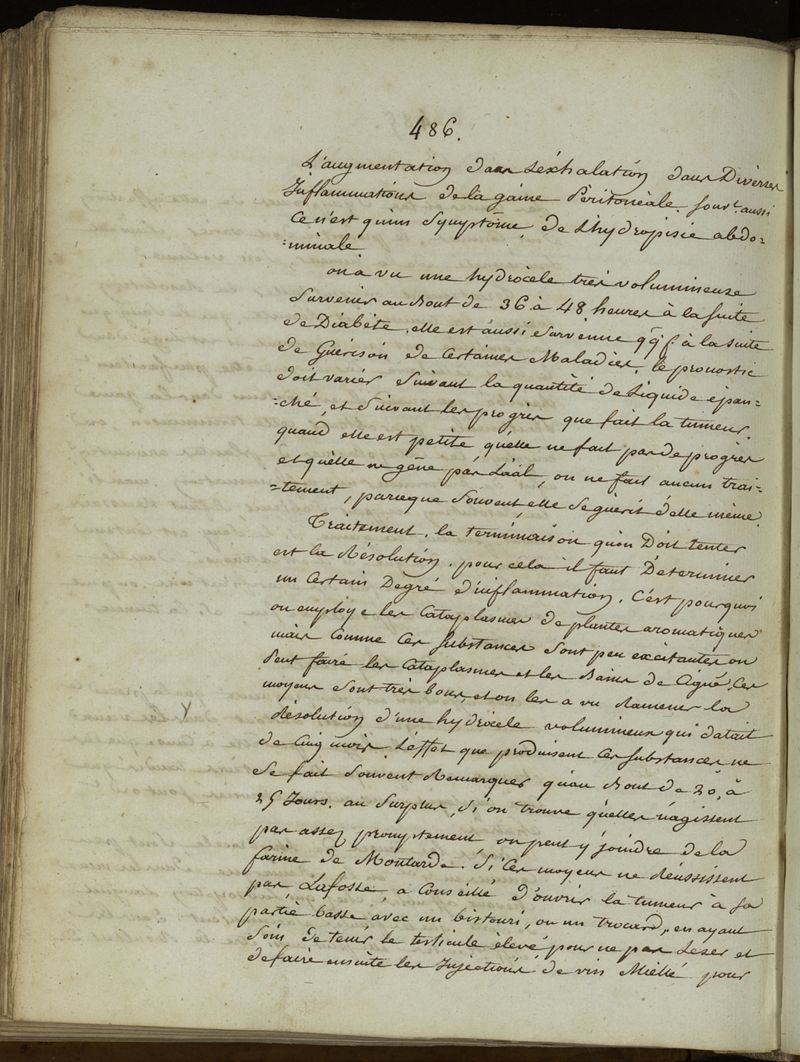 486.
L'augmentation dans L'éxhalation dans Diverses
Inflammations de la gaine Péritonéale. souvt. aussi
Ce n'est qu'un Symptôme de L'hydropisie abdo=
=minale
on a vu une hydrocele très volumineuse
Survenir au Bout de 36 à 48 heures à la suite
de Diabéte, elle est aussi Survenue qqf. à la suite
de Guérison de Certaines Maladies, le pronostic
doit varier Suivant la quantité de Liquide épan=
=ché, et Suivant les progrès que fait la tumeur.
quand elle est petite qu'elle ne fait pas de progrès
et qu'elle ne gêne pas L'aâl, on ne fait aucun trai=
=tement, parceque Souvent elle Se guérit d'elle même.
Traitement. la terminaison qu'on Doit tenter
est la Résolution. pour cela il faut Determiner
un Certain Degré d'inflammation. C'est pourquoi
on employe les Cataplasmes de plantes aromatiques
mais Comme Ces Substances Sont peu excitantes on
Peut faire les Cataplasmes et les Bains de Ciguë, Ces
moyens Sont très bons, et on les a vu Ramener la
Résolution d'une hydrocele volumineux qui datait
de Cinq mois. L'effet que produisent Ces Substances ne
Se fait Souvent Remarquer qu'au Bout de 20, à
25 Jours. au Surplus, Si on trouve qu'elles n'agissent
pas assez promptement on peut y joindre de la
farine de Moutarde. Si Ces moyens ne Réussissent
pas Lafosse a Conseillé d'ouvrir la tumeur à Sa
partie basse avec un bistouri, ou un trocard, en ayant
Soin de tenir le testicule élevé pour ne pas Leser et
de faire ensuite les Injections de vin Miellé pour